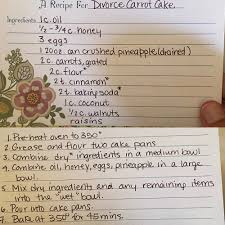 A Recipe For Divorce Carrot Cake
Ingredients: 1c. oil
1/2 - 3/4 c. honey
3 eggs
1 20oz. can crushed pineapple (drained)
2 c. carrots, grated
2c. flour*
2 t. cinnamon*
2t. baking soda*
1 c. coconut
1/2 c. walnuts
raisins
1. Preheat oven to 350°
2. Grease and flour two cake pans.
3. Combine dry* ingredients in a medium bowl
4. Combine oil, honey, eggs, pineapple in a large
bowl.
5. Mix dry ingredients and any remaining items
into the "wet" bowl.
6. Pour into cake pans.
7. Bake at 350° for 45 mins.